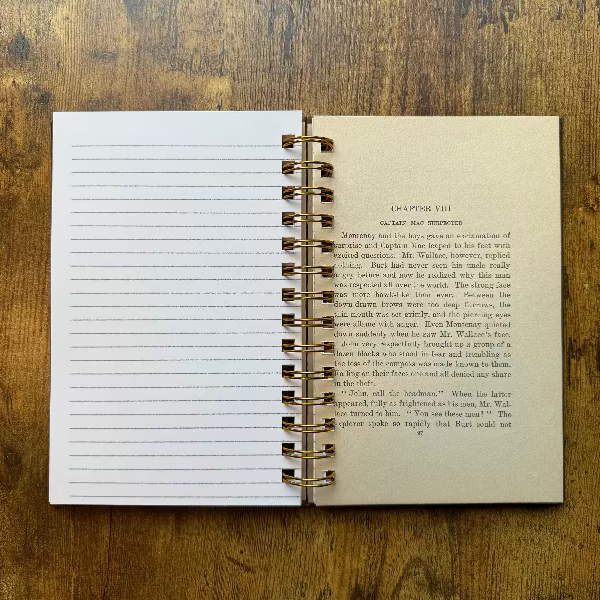 CHAPTER VIII
CAPTAIN MAC SUSPECTED
Montenay and the boys gave an exclamation of
surprise and Captain Mac leaped to his feet with
excited questions. Mr. Wallace, however, replied
nothing. Burt had never seen his uncle really
angry before and now he realized why this man
was respected all over the world. The strong face
was more hawk-like than ever. Between the
down-drawn brows were two deep furrows, the
thin mouth was set grimly, and the piercing eyes
were aflame with anger. Even Montenay quieted
down suddenly when he saw Mr. Wallace's face.
John very respectfully brought up a group of a
dozen blacks who stood in fear and trembling as
the loss of the compass was made known to them.
Falling on their faces one and all denied any share
in the theft.
"John, call the headman." When the latter
appeared, fully as frightened as his men, Mr. Wal-
lace turned to him. "You see these men?" The
explorer spoke so rapidly that Burt could not